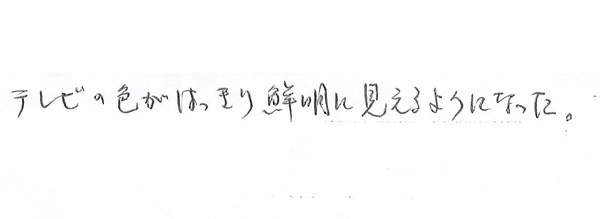 テレビの色がはっきり鮮明に見えるようになった。